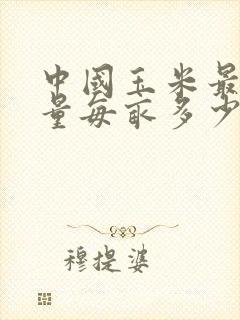 中國玉米最
量每亩多少
穆提婆